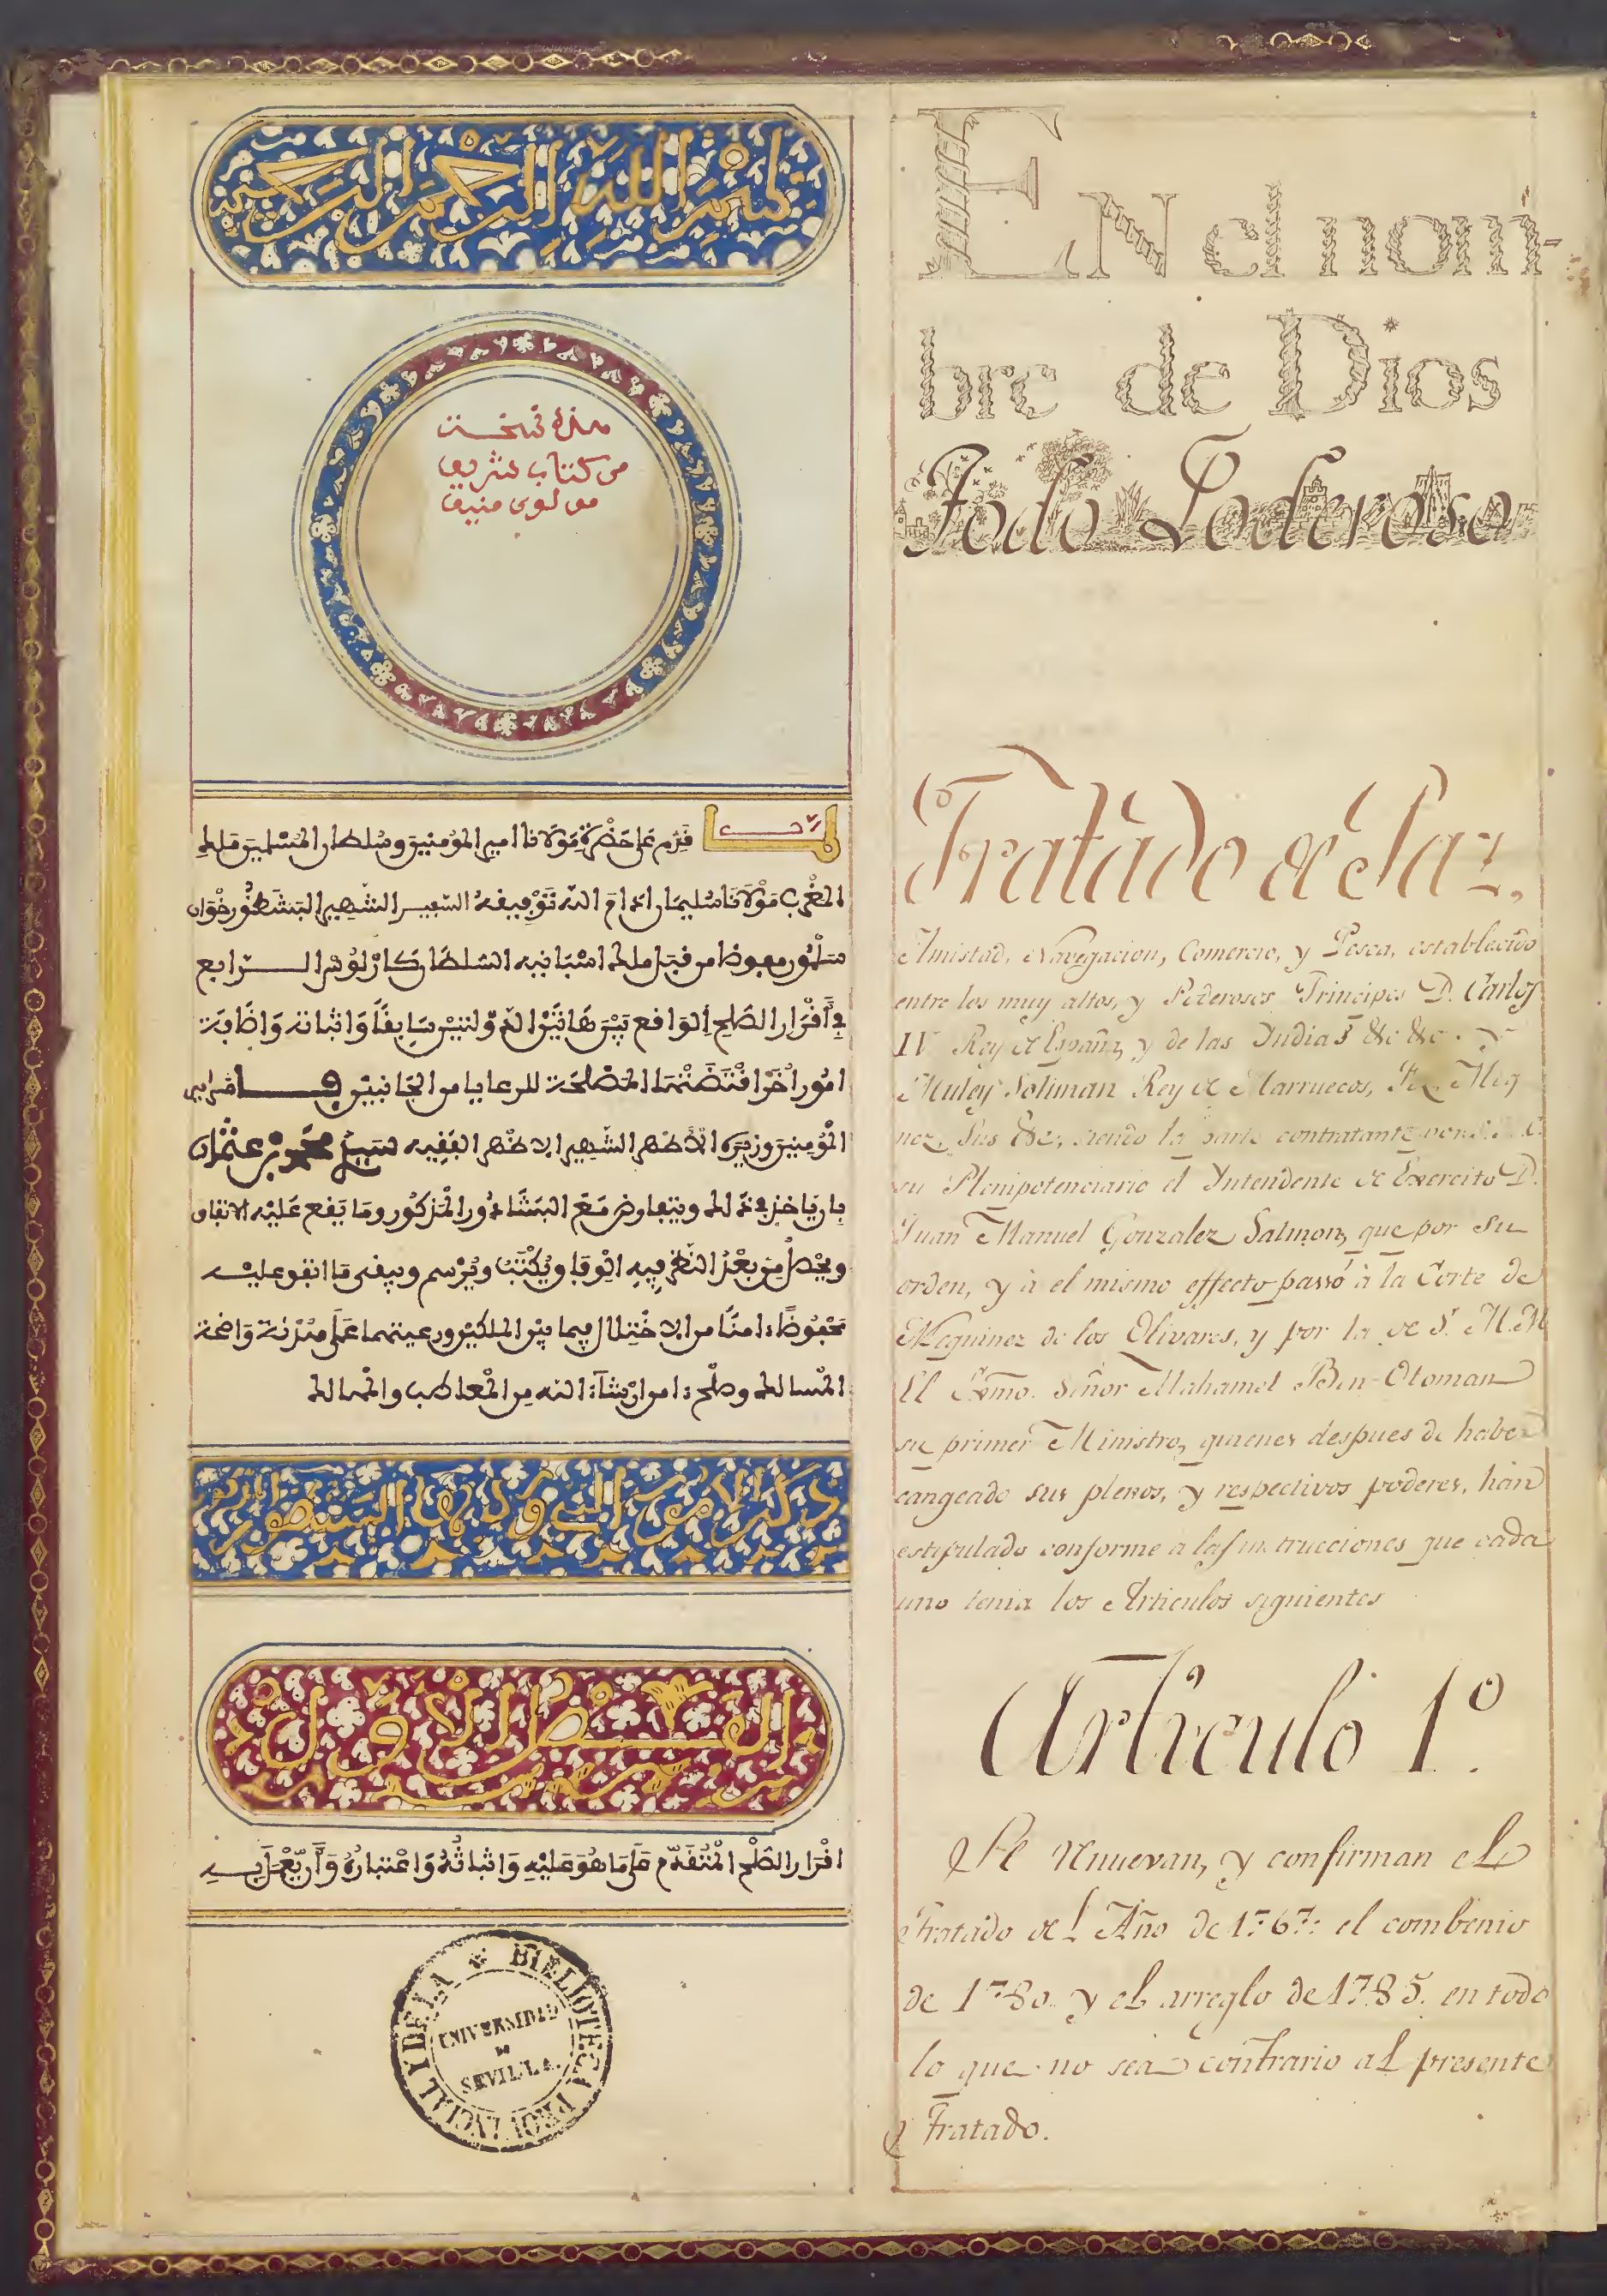 بسم الله الرحمن الرحيم
هذه نسخة
من كتاب شريف
مولوي منيف
لما قدم على حضرة مولانا امير المؤمنين وسلطان المسلمين ملك
المغرب مولانا سليمان ادام الله توفيقه السفير الشهير البشطور خوان
سلمون مفوضا من قبل ملك اسبانيه السلطان كارلوس الرابع
في اقرار الصلح الواقع بين هاتين الدولتين سابقا واثباته واضافة
امور اخر اقتضتها المصلحة للرعايا من الجانبين امير
المؤمنين وزيره الشهير الفقيه سيد محمد بن عثمان
بان ياخذ في ذلك ويتفاوض مع البشادور المذكور وما يقع عليه الاتفاق
ويحصل من بعد النظر فيه الوفا ويكتب ويرسم ويبقى ما اتفق عليه
محفوظا امنا من الاختلال فيما بين الملكين ورعيتهما على واضحة
المسالك وصلح امن ان شاء الله من المعاطب والمهالك
ذكر الامور التي وقع
الشرط الاول
اقرار الصلح المتقدم على ما هو عليه واثباته واعتباره وان
EN el nom-
bre de Dios
Todo Poderoso
Tratado de Paz,
Amistad, Navegacion, Comercio, y Pesca, establecido
entre los muy altos, y Poderosos Principes D. Carlos
IV Rey de España, y de las Yndias &c &c. y
Muley Soliman Rey de Marruecos, Fez, Meq
nez, Sus &c, siendo la parte contratante por S. M. C.
su Plenipotenciario el Yntendente de Exercito D.
Juan Manuel Gonzalez Salmon, que por su
orden, y à el mismo effecto passó à la Corte de
Mequinez de los Olivares, y por la de S. M. M
El Exmo. Señor Mahamet Ben Otoman
su primer Ministro, quienes despues de haber
cangeado sus plenos, y respectivos poderes, han
estipulado conforme a las instrucciones que cada
uno tenia los Articulos siguientes
Articulo 1º.
Se renuevan, y confirman el
Tratado del Año de 1767: el combenio
de 1780. y el arreglo de 1785. en todo
lo que no sea contrario al presente
Tratado.
BIBLIOTECA PROVINCIAL Y DE LA
UNIVERSIDAD
DE
SEVILLA.